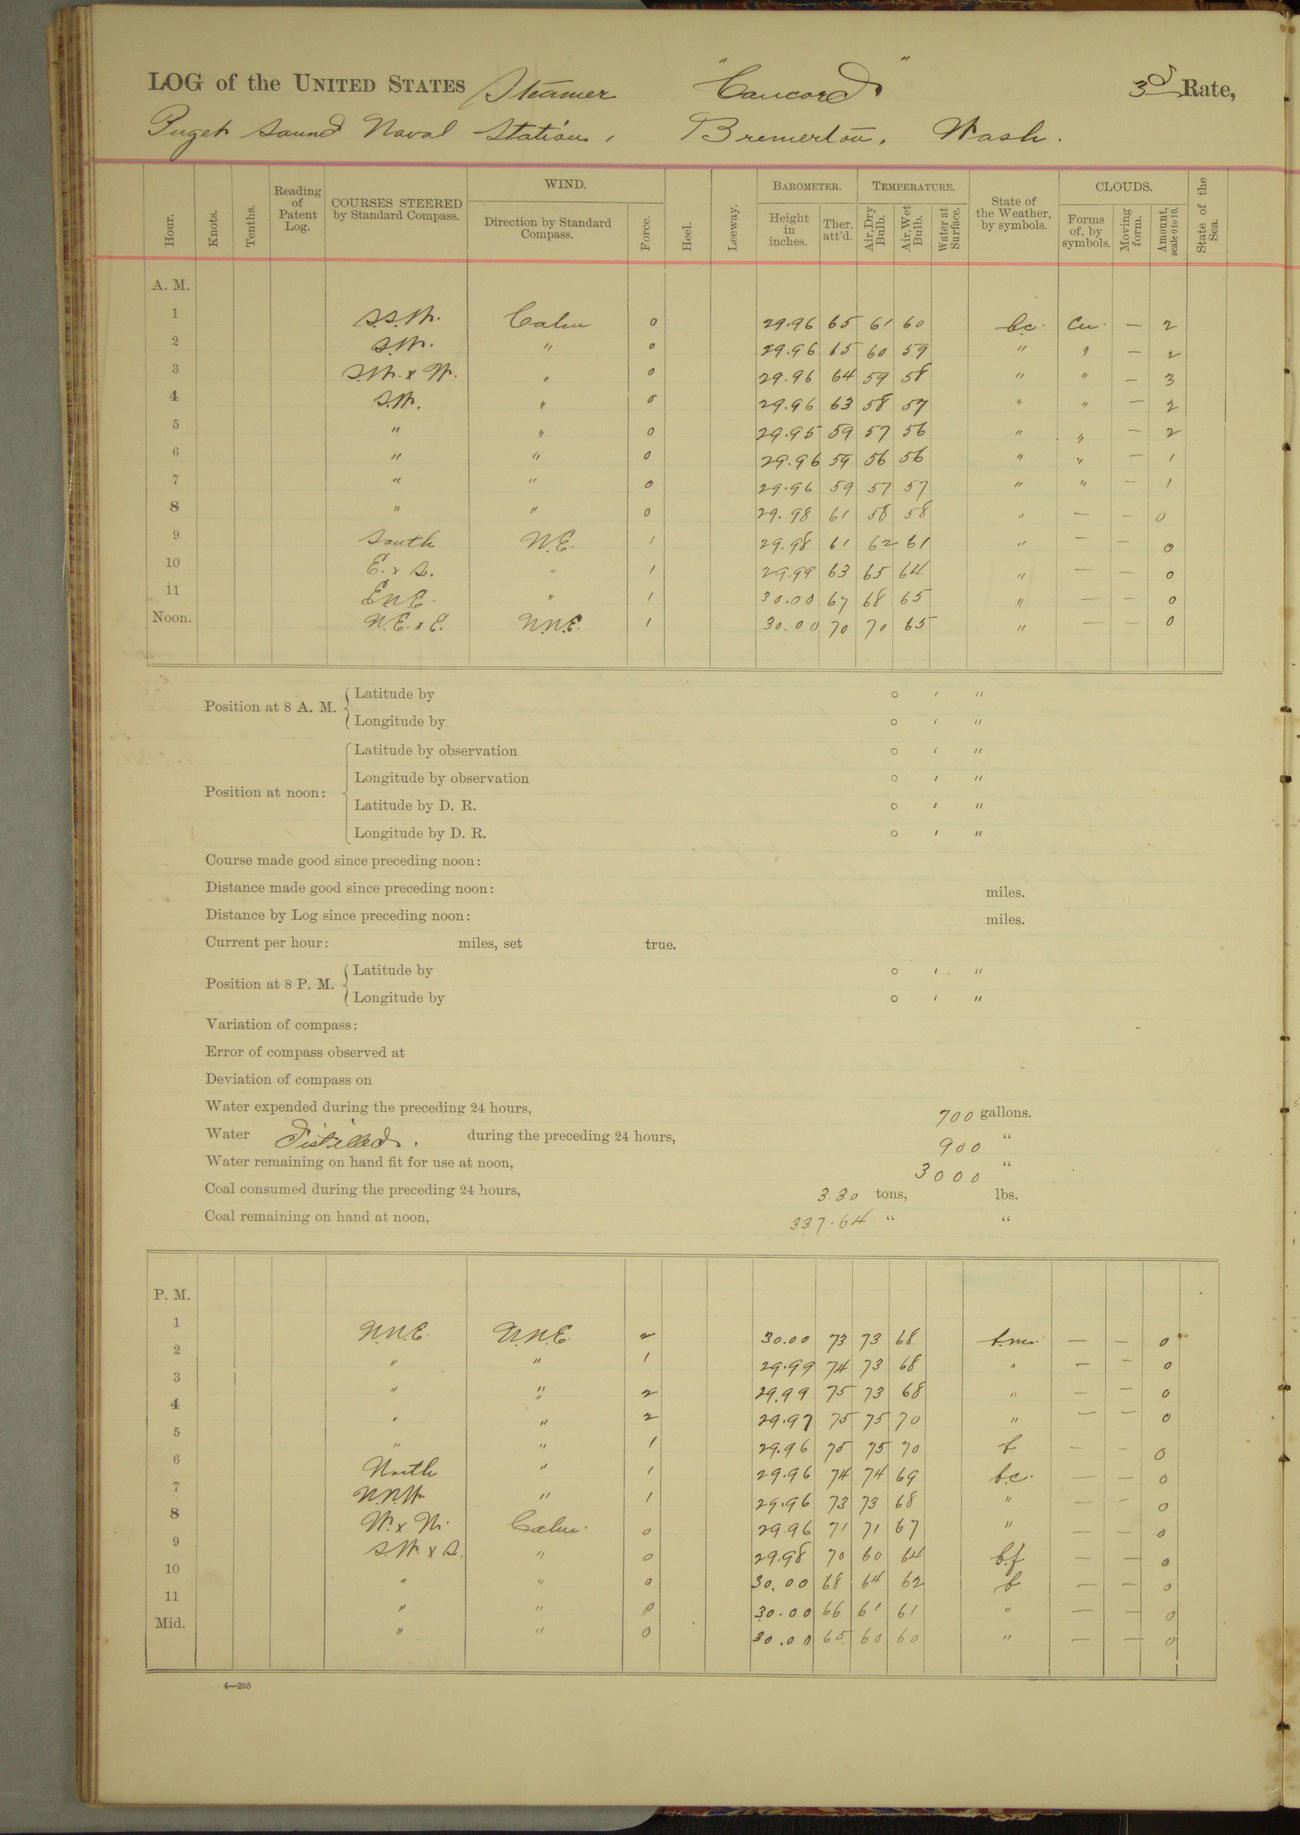 LOG of the UNITED STATES Steamer "Concord" 3d Rate,
Puget Sound Naval Station, Bremerton, Wash.
Hour. Knots. Tenths. Reading of Patent Log. COURSES STEERED by Standard Compass. WIND. Direction by Standard Compass. Force. Heel. Leeway. BAROMETER. Height in inches. Ther. att'd. TEMPERATURE. Air, Dry Bulb. Air, Wet Bulb. Water at Surface. State of the Weather, by symbols. CLOUDS. Forms of, by symbols. Moving form. Amount, scale 0 to 10. State of the Sea.
A. M.
1 S.S.W. Calm 0 29.96 65 61 60 b.c. Cu. — 2
2 S.W. " 0 29.96 65 60 59 " " — 2
3 S.W. x W. " 0 29.96 64 59 58 " " — 3
4 S.W. " 0 29.96 63 58 57 " " — 2
5 " " 0 29.95 59 57 56 " " — 2
6 " " 0 29.96 59 56 56 " " — 1
7 " " 0 29.96 59 57 57 " " — 1
8 " " 0 29.98 61 58 58 " — — 0
9 South N.E. 1 29.98 61 62 61 " — — 0
10 E. x S. " 1 29.99 63 65 64 " — — 0
11 E.N.E. " 1 30.00 67 68 65 " — — 0
Noon. N.E. x E. N.N.E. 1 30.00 70 70 65 " — — 0
Position at 8 A. M. Latitude by ° ' "
Longitude by ° ' "
Position at noon: Latitude by observation ° ' "
Longitude by observation ° ' "
Latitude by D. R. ° ' "
Longitude by D. R. ° ' "
Course made good since preceding noon:
Distance made good since preceding noon: miles.
Distance by Log since preceding noon: miles.
Current per hour: miles, set true.
Position at 8 P. M. Latitude by ° ' "
Longitude by ° ' "
Variation of compass:
Error of compass observed at
Deviation of compass on
Water expended during the preceding 24 hours, 700 gallons.
Water Distilled. during the preceding 24 hours, 900 "
Water remaining on hand fit for use at noon, 3000 "
Coal consumed during the preceding 24 hours, 3.30 tons, lbs.
Coal remaining on hand at noon, 337.64 " "
P. M.
1 N.N.E. N.N.E. 2 30.00 73 73 68 b.m. — — 0
2 " " 1 29.99 74 73 68 " — — 0
3 " " 2 29.99 75 73 68 " — — 0
4 " " 2 29.97 75 75 70 " — — 0
5 " " 1 29.96 75 75 70 b — — 0
6 North " 1 29.96 74 74 69 b.c. — — 0
7 N.N.W. " 1 29.96 73 73 68 " — — 0
8 W. x N. Calm. 0 29.96 71 71 67 " — — 0
9 S.W. x S. " 0 29.98 70 60 64 b.f — — 0
10 " " 0 30.00 68 64 62 b — — 0
11 " " 0 30.00 66 61 61 " — — 0
Mid. " " 0 30.00 65 60 60 " — — 0
4—265